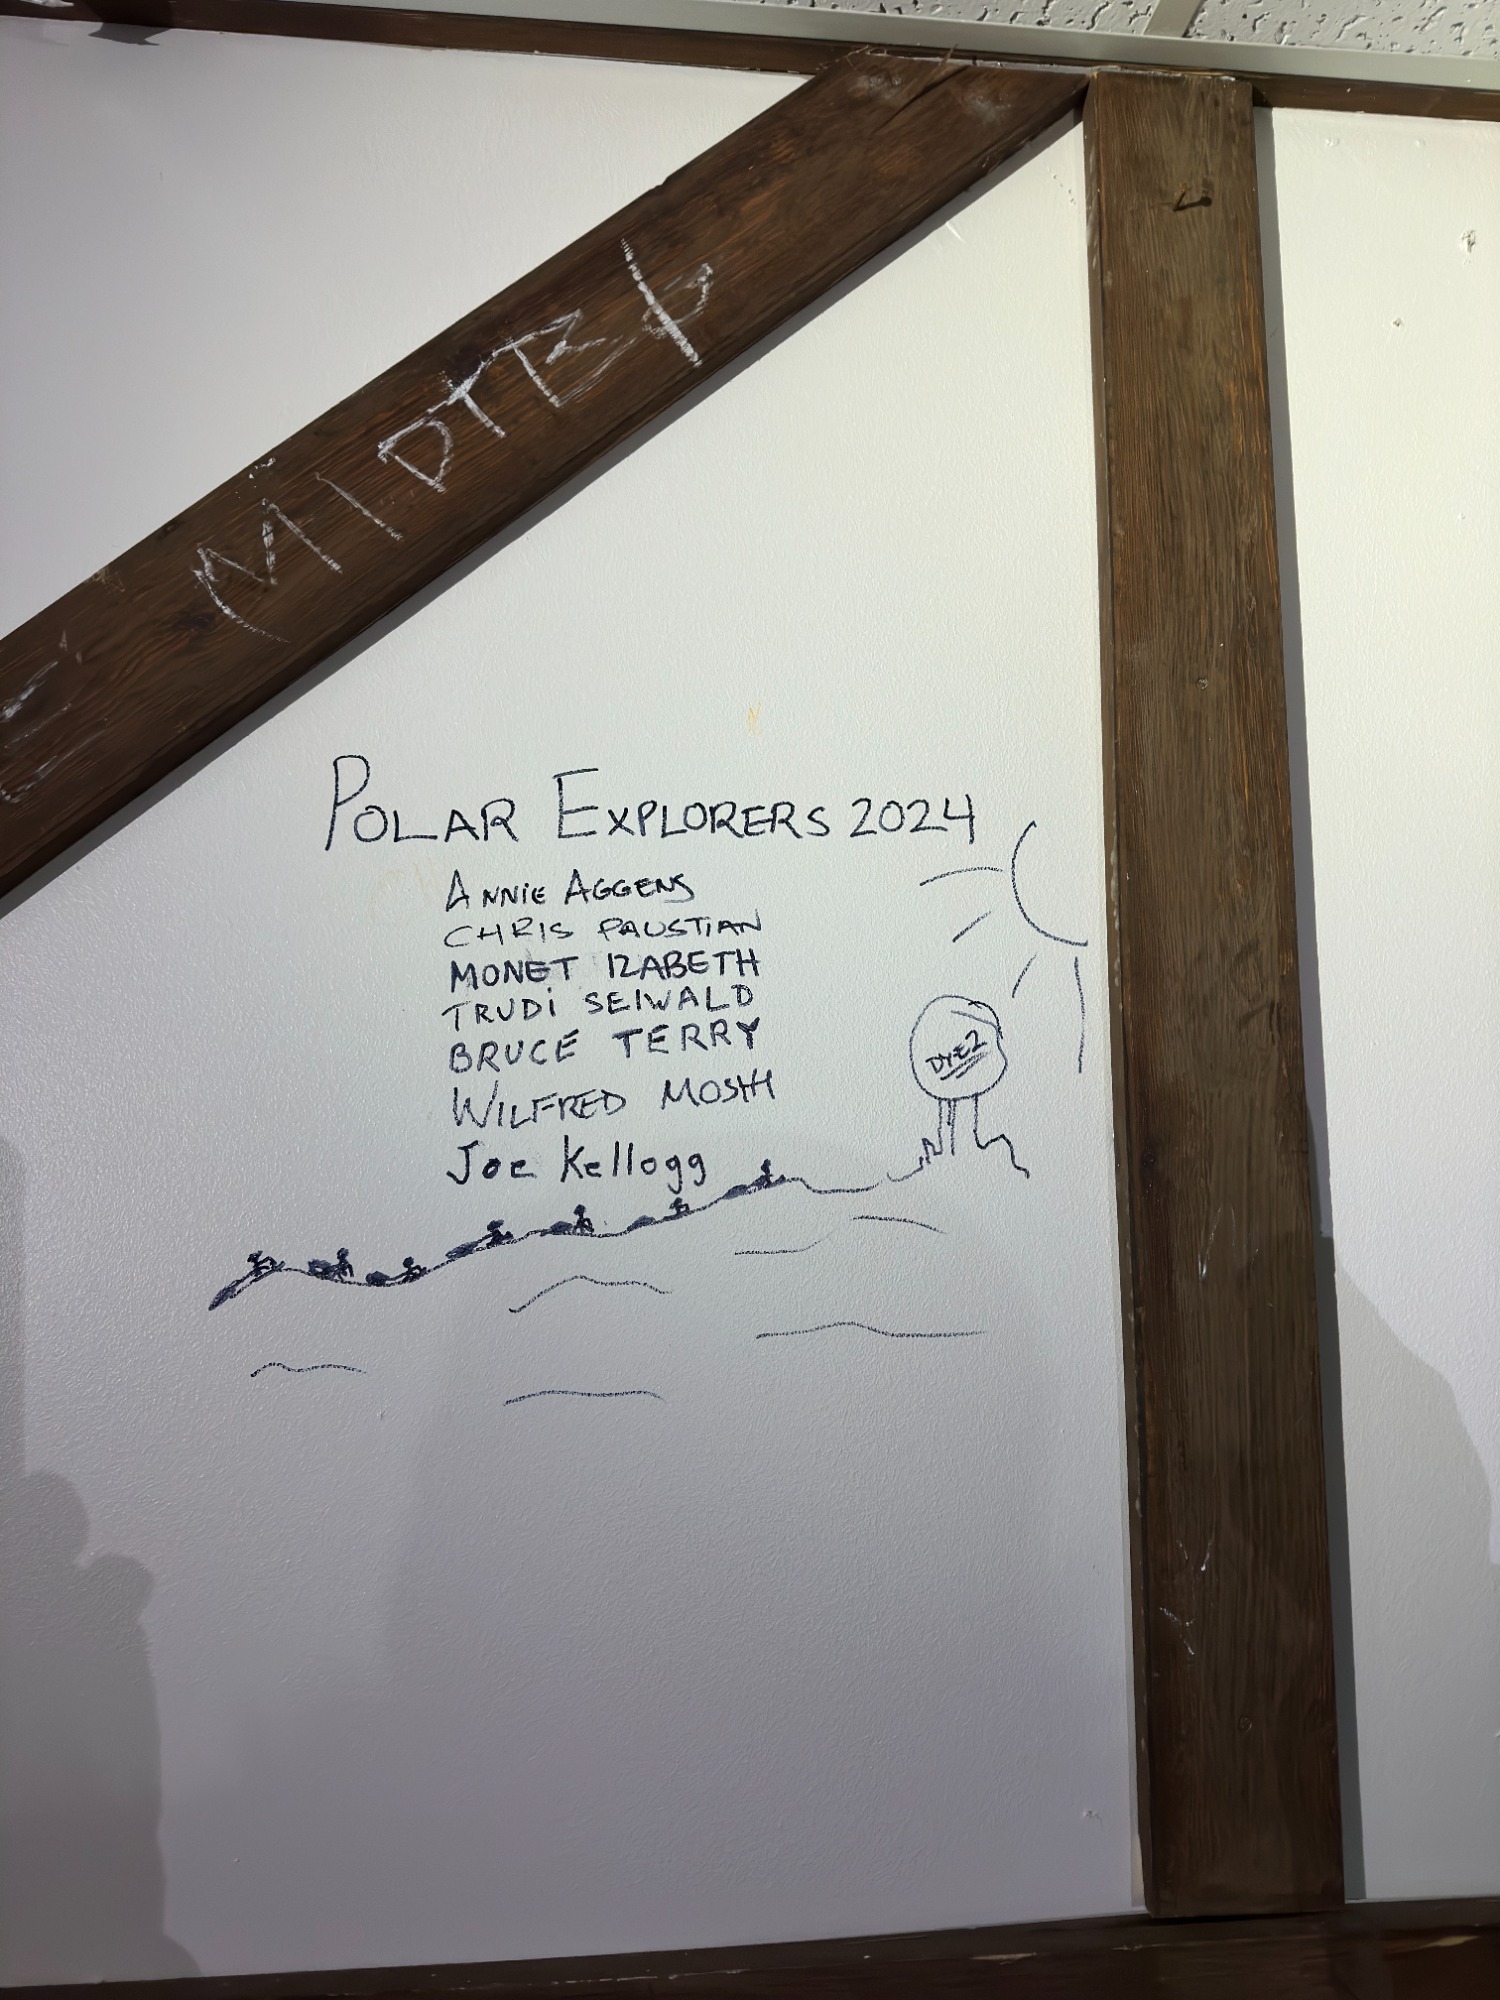 POLAR EXPLORERS 2024
ANNIE AGGENS
CHRIS PAUSTIAN
MONET IZABETH
TRUDi SEIWALD
BRUCE TERRY
WILFRED
Joe Kellogg
DYE2